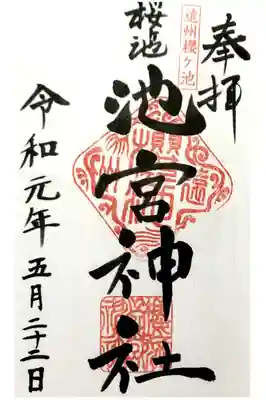 奉拝
遠州櫻ケ池
桜池
池宮神社
令和元年五月二十二日